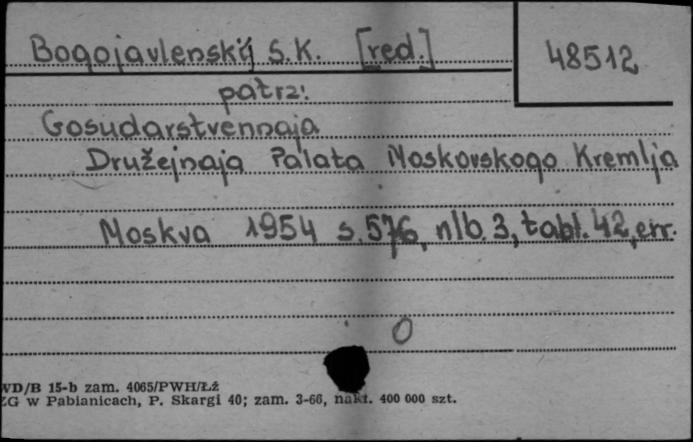 Bogojavlenskij S.K. [red.]
48512
patrz:
Gosudarstvennaja
Družejnaja Palata Moskovskogo Kremlja
Moskva 1954 s. 576, nlb. 3, tabl. 42, err.
0
WD/B 15-b zam. 4065/PWH/Łź
ZG w Pabianicach, P. Skargi 40; zam. 3-66, nakł. 400 000 szt.